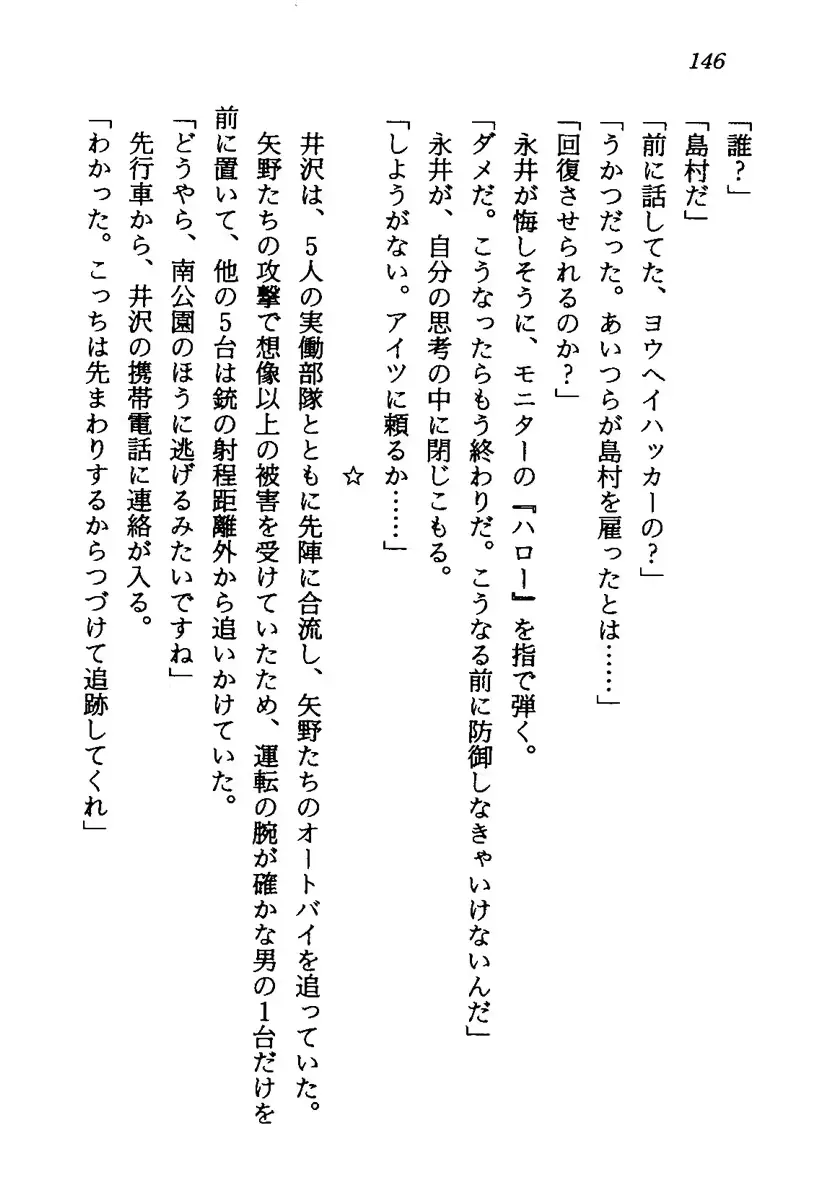 146
「誰？」
「島村だ」
「前に話してた、ヨウヘイハッカーの？」
「うかつだった。あいつらが島村を雇ったとは……」
「回復させられるのか？」
永井が悔しそうに、モニターの『ハロー』を指で弾く。
「ダメだ。こうなったらもう終わりだ。こうなる前に防御しなきゃいけないんだ」
永井が、自分の思考の中に閉じこもる。
「しようがない。アイツに頼るか……」
☆
井沢は、5人の実働部隊とともに先陣に合流し、矢野たちのオートバイを追っていた。
矢野たちの攻撃で想像以上の被害を受けていたため、運転の腕が確かな男の1台だけを
前に置いて、他の5台は銃の射程距離外から追いかけていた。
「どうやら、南公園のほうに逃げるみたいですね」
先行車から、井沢の携帯電話に連絡が入る。
「わかった。こっちは先まわりするからつづけて追跡してくれ」